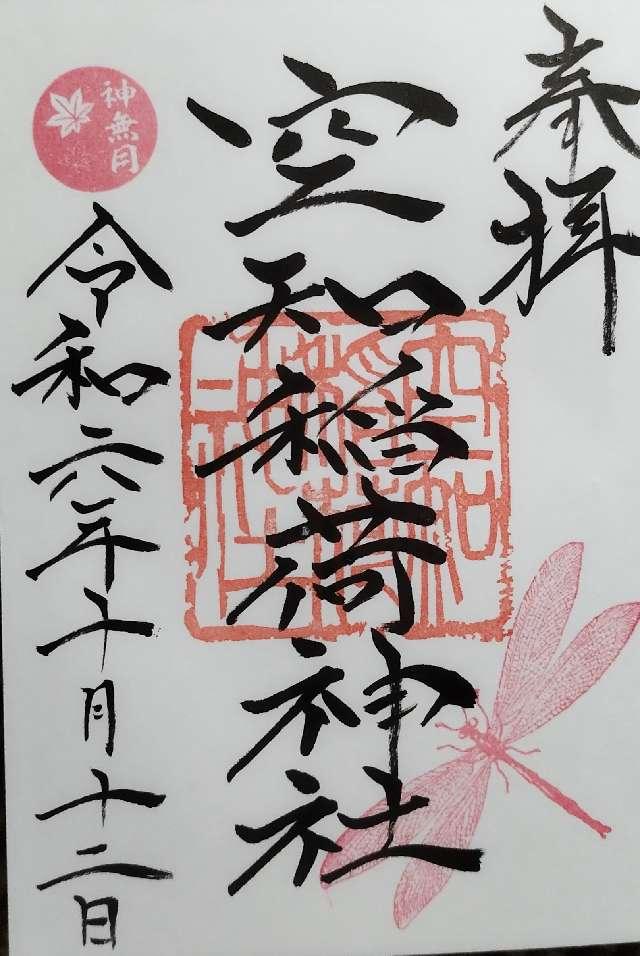 奉拝
空知稲荷神社
神無月
令和六年十月十二日